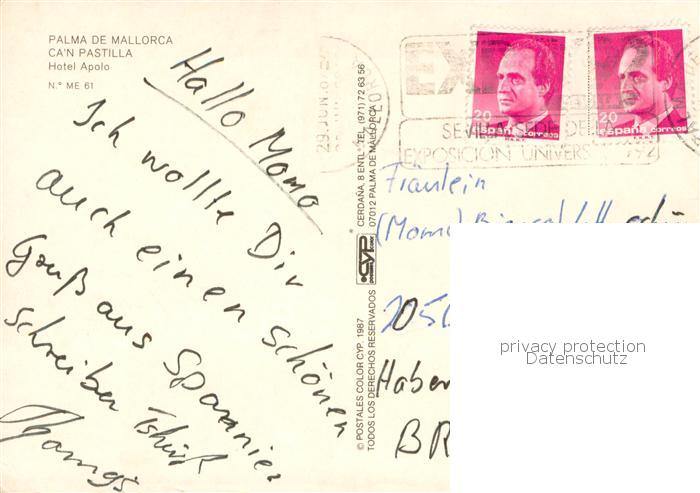 PALMA DE MALLORCA
CA'N PASTILLA
Hotel Apolo
N.° ME 61
Hallo Momo
Ich wollte Dir
auch einen schönen
Gruß aus Spannien
schreiben Tschüß
© POSTALES COLOR CYP, 1987
TODOS LOS DERECHOS RESERVADOS
CYP
CERDAÑA, 8 ENTL.° TEL. (971) 72 63 56
07012 PALMA DE MALLORCA
29 JUN
EXPOSICION UNIVERS
92
20
España correos
20
España correos
Fräulein
(Momo)
Haber
BR
privacy protection
Datenschutz